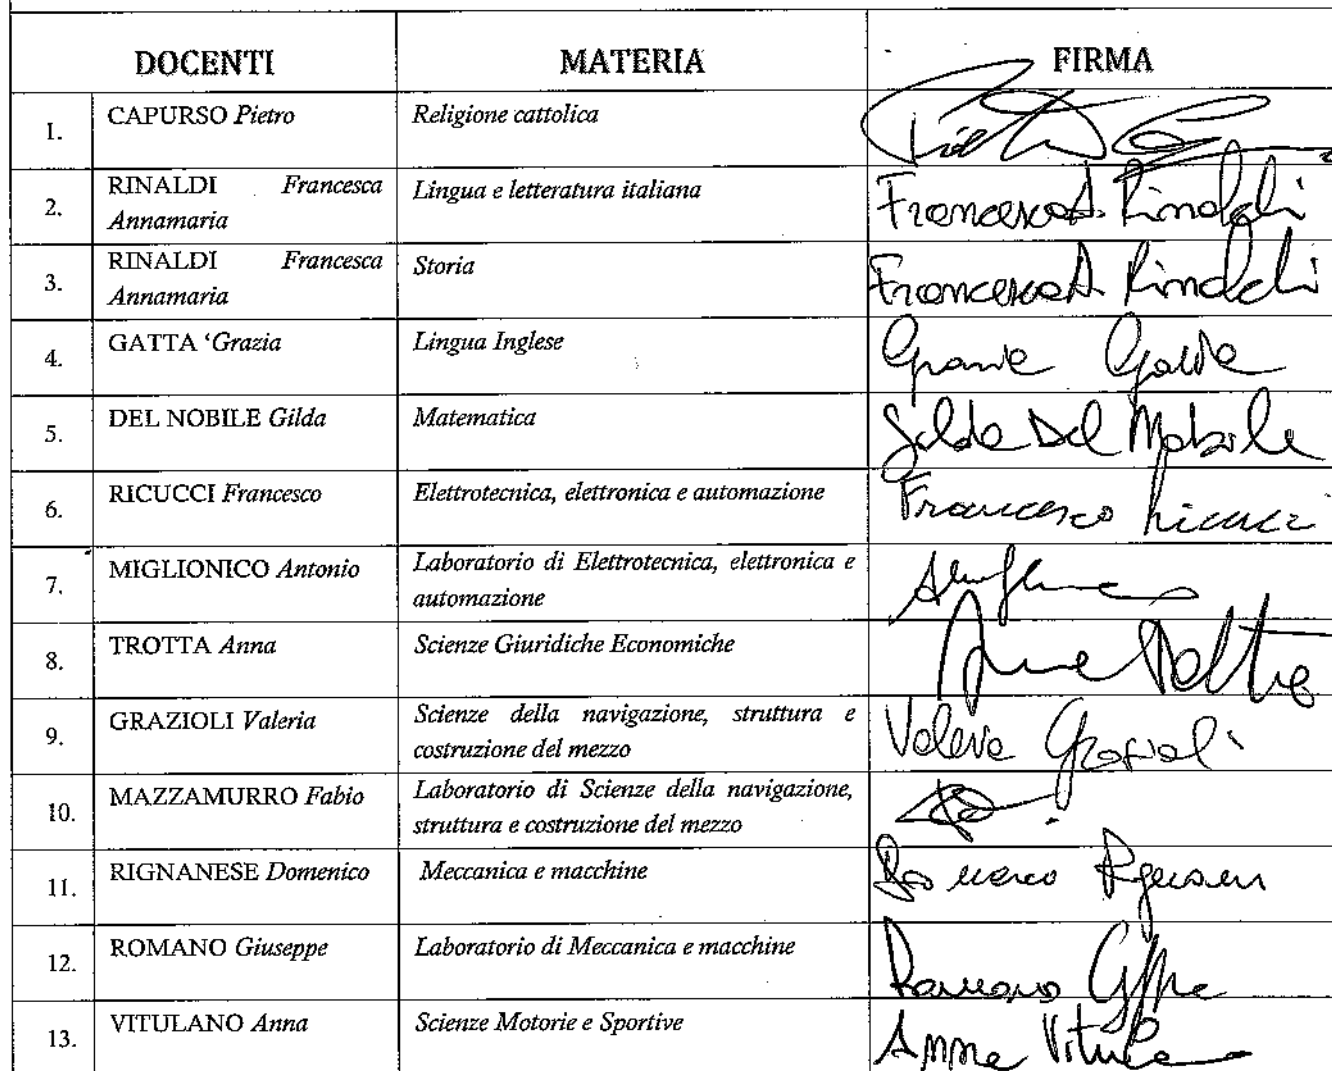 DOCENTI MATERIA FIRMA
1. CAPURSO Pietro Religione cattolica
2. RINALDI Francesca Lingua e letteratura italiana Francesca A. Rinaldi
Annamaria
3. RINALDI Francesca Storia Francesca A. Rinaldi
Annamaria
4. GATTA ‘Grazia Lingua Inglese Grazia Gatta
5. DEL NOBILE Gilda Matematica Gilda Del Nobile
6. RICUCCI Francesco Elettrotecnica, elettronica e automazione Francesco Ricucci
7. MIGLIONICO Antonio Laboratorio di Elettrotecnica, elettronica e
automazione
8. TROTTA Anna Scienze Giuridiche Economiche Anna Trotta
9. GRAZIOLI Valeria Scienze della navigazione, struttura e Valeria Grazioli
costruzione del mezzo
10. MAZZAMURRO Fabio Laboratorio di Scienze della navigazione,
struttura e costruzione del mezzo
11. RIGNANESE Domenico Meccanica e macchine Domenico Rignanese
12. ROMANO Giuseppe Laboratorio di Meccanica e macchine Romano Gppe
13. VITULANO Anna Scienze Motorie e Sportive Anna Vitulano